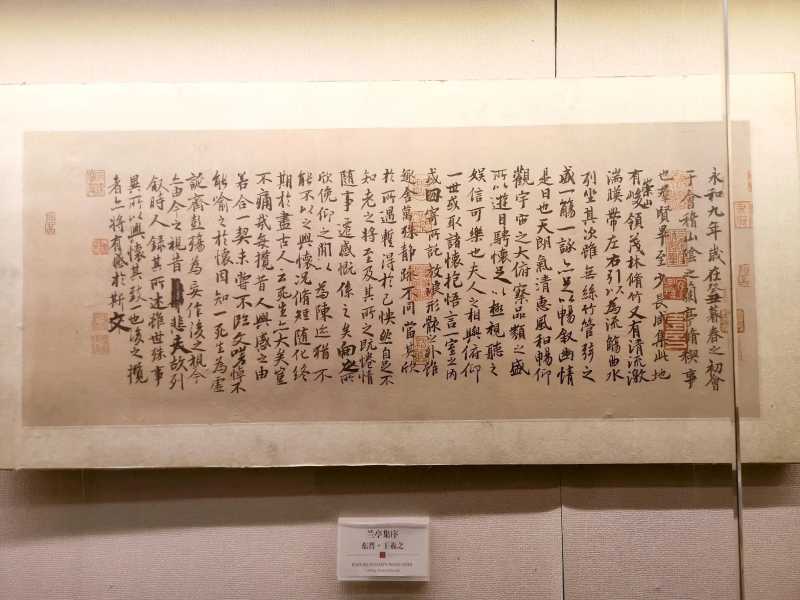 永和九年歲在癸丑暮春之初會
于會稽山陰之蘭亭脩稧事
也羣賢畢至少長咸集此地
有崇山峻領茂林脩竹又有清流激
湍暎帶左右引以為流觴曲水
列坐其次雖無絲竹管弦之
盛一觴一詠亦足以暢敘幽情
是日也天朗氣清惠風和暢仰
觀宇宙之大俯察品類之盛
所以遊目騁懷足以極視聽之
娛信可樂也夫人之相與俯仰
一世或取諸懷抱悟言一室之內
或因寄所託放浪形骸之外雖
趣舍萬殊靜躁不同當其欣
於所遇蹔得於己怏然自足不
知老之將至及其所之既惓情
隨事遷感慨係之矣向之所
欣俛仰之間以為陳迹猶不
能不以之興懷況脩短隨化終
期於盡古人云死生亦大矣豈
不痛哉每攬昔人興感之由
若合一契未嘗不臨文嗟悼不
能喻之於懷固知一死生為虛
誕齊彭殤為妄作後之視今
亦由今之視昔悲夫故列
敘時人錄其所述雖世殊事
異所以興懷其致一也後之攬
者亦將有感於斯文
兰亭集序
东晋·王羲之